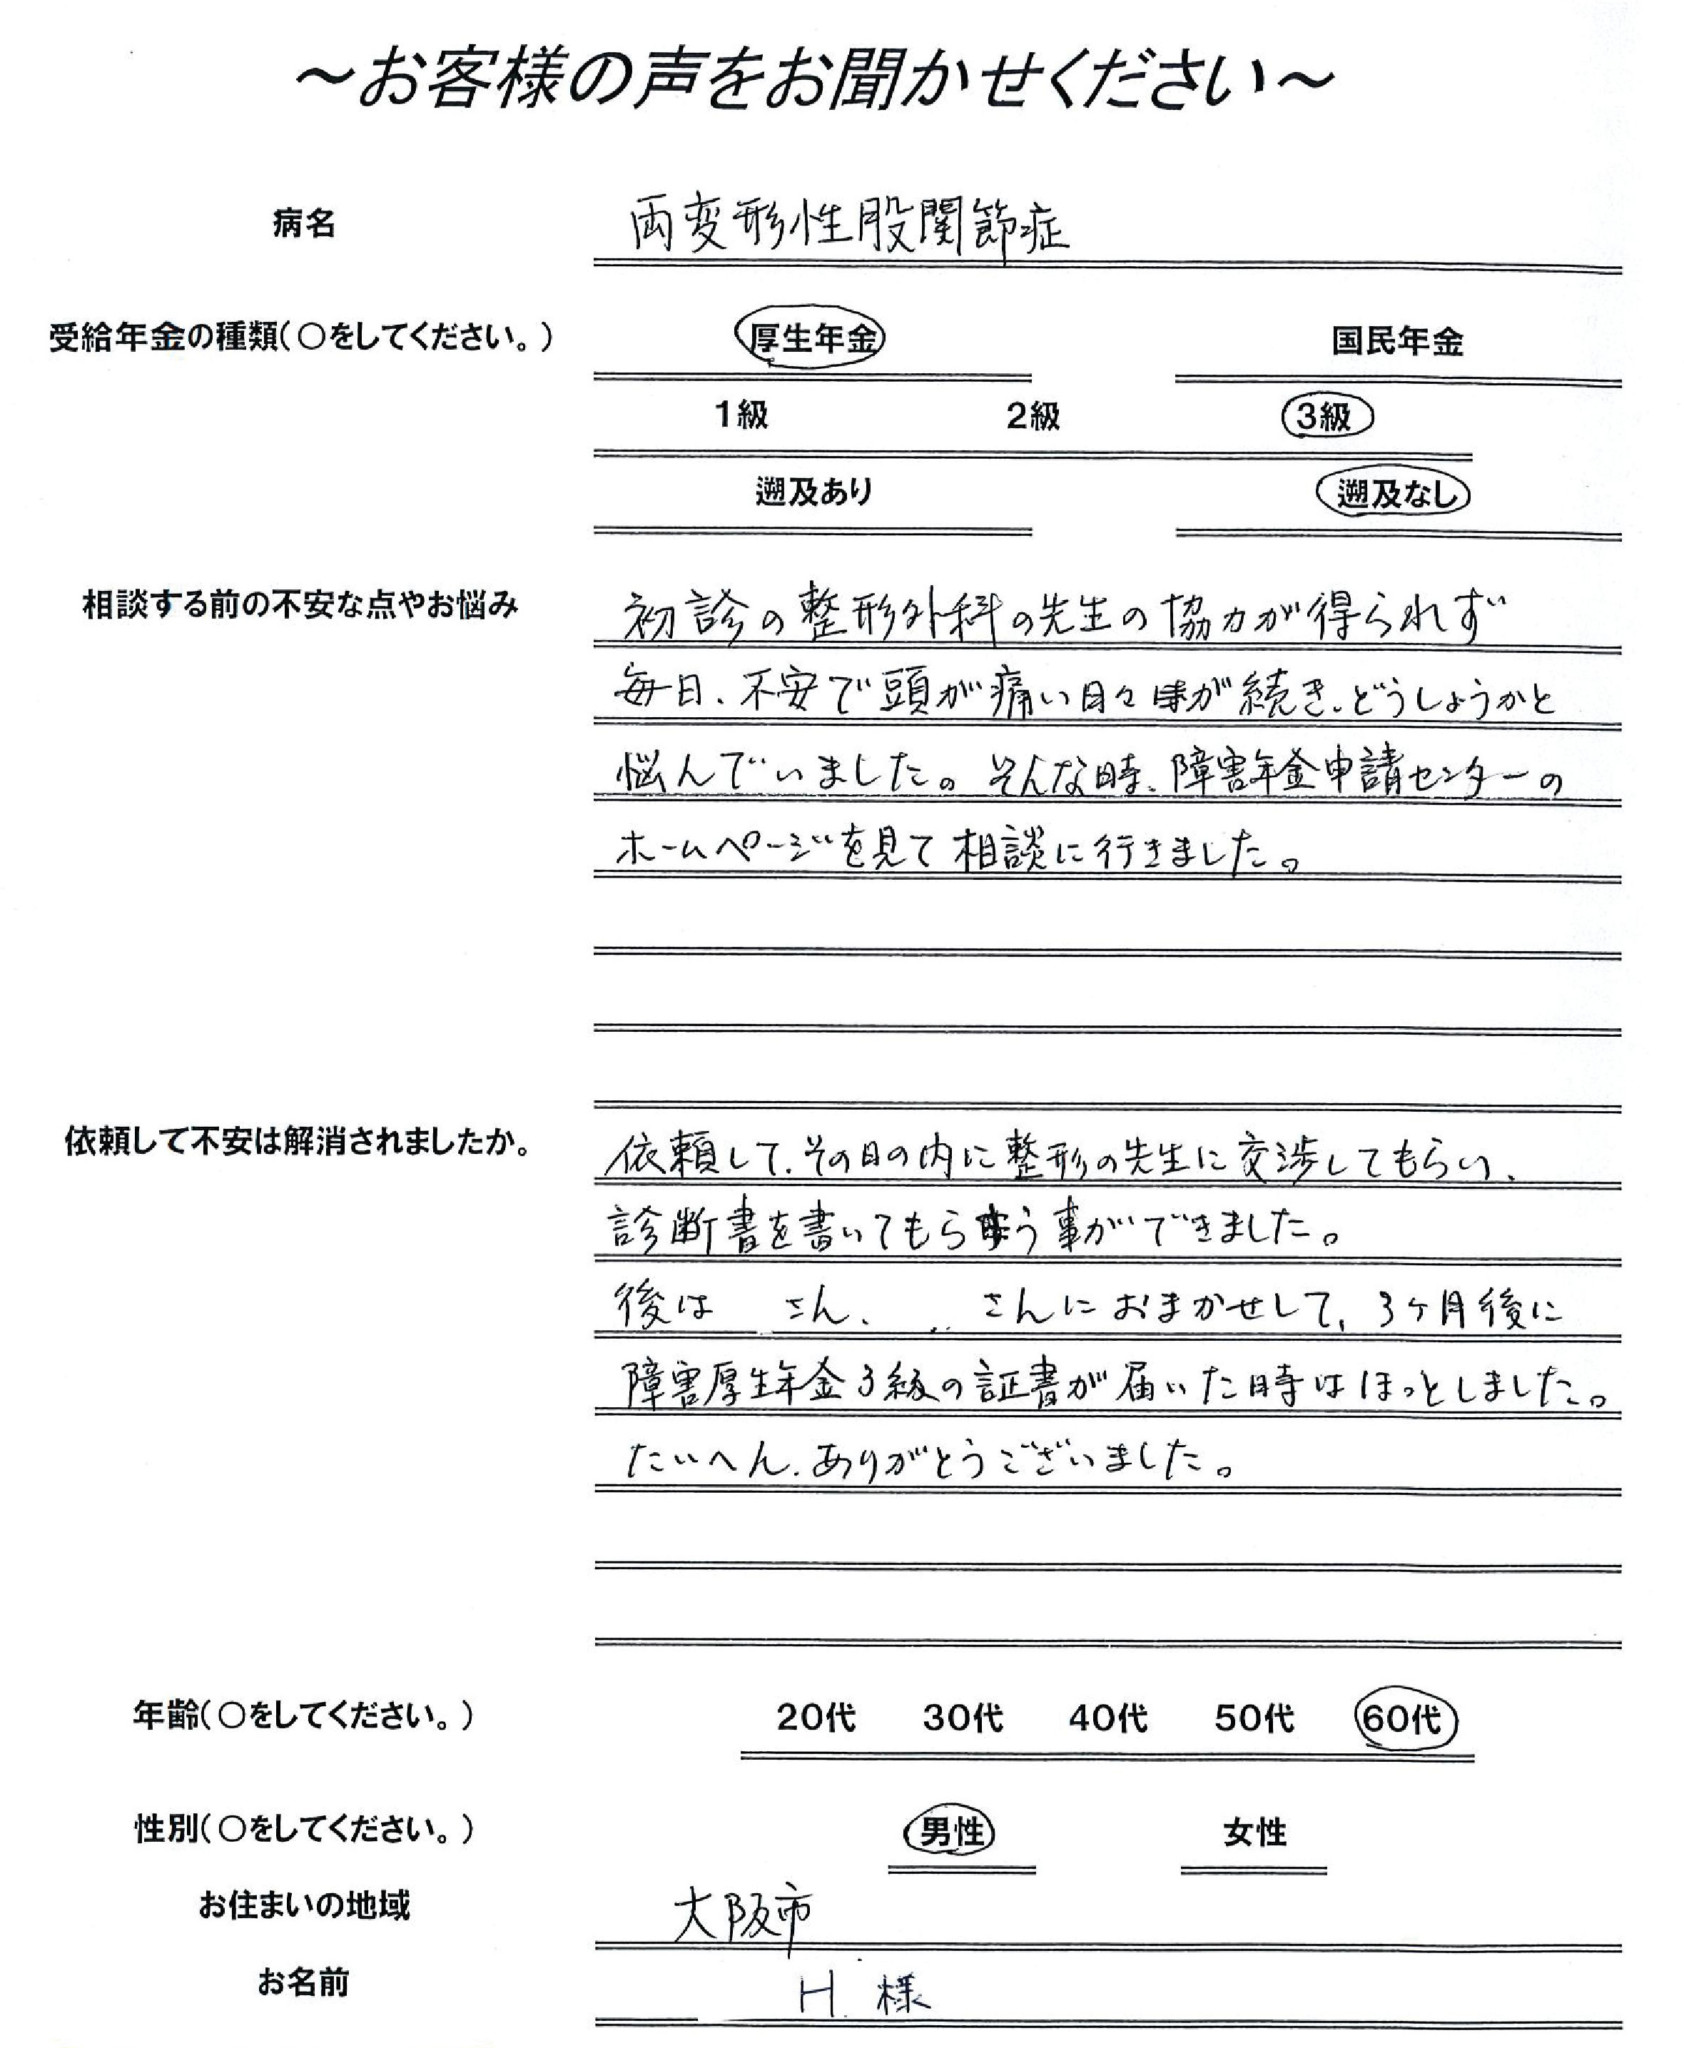 ～お客様の声をお聞かせください～
病名 両変形性股関節症
受給年金の種類(○をしてください。) 厚生年金 国民年金
1級 2級 3級
遡及あり 遡及なし
相談する前の不安な点やお悩み 初診の整形外科の先生の協力が得られず
毎日、不安で頭が痛い日々が続き、どうしょうかと
悩んでいました。そんな時、障害年金申請センターの
ホームページを見て相談に行きました。
依頼して不安は解消されましたか。 依頼して、その日の内に整形の先生に交渉してもらい、
診断書を書いてもらう事ができました。
後は さん、 さんにおまかせして、3ヶ月後に
障害厚生年金3級の証書が届いた時はほっとしました。
たいへん、ありがとうございました。
年齢(○をしてください。) 20代 30代 40代 50代 60代
性別(○をしてください。) 男性 女性
お住まいの地域 大阪市
お名前 H 様